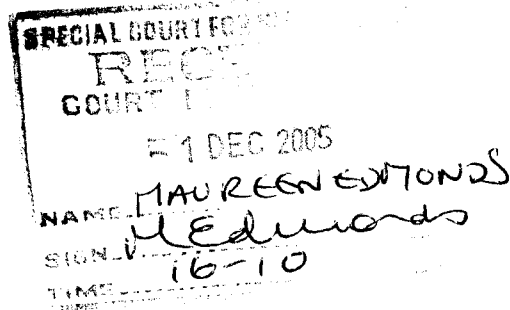 SPECIAL COURT FOR
RECE
COURT
1 DEC 2005
NAME MAUREEN EDMONDS
SIGN MEdmonds
TIME 16-10